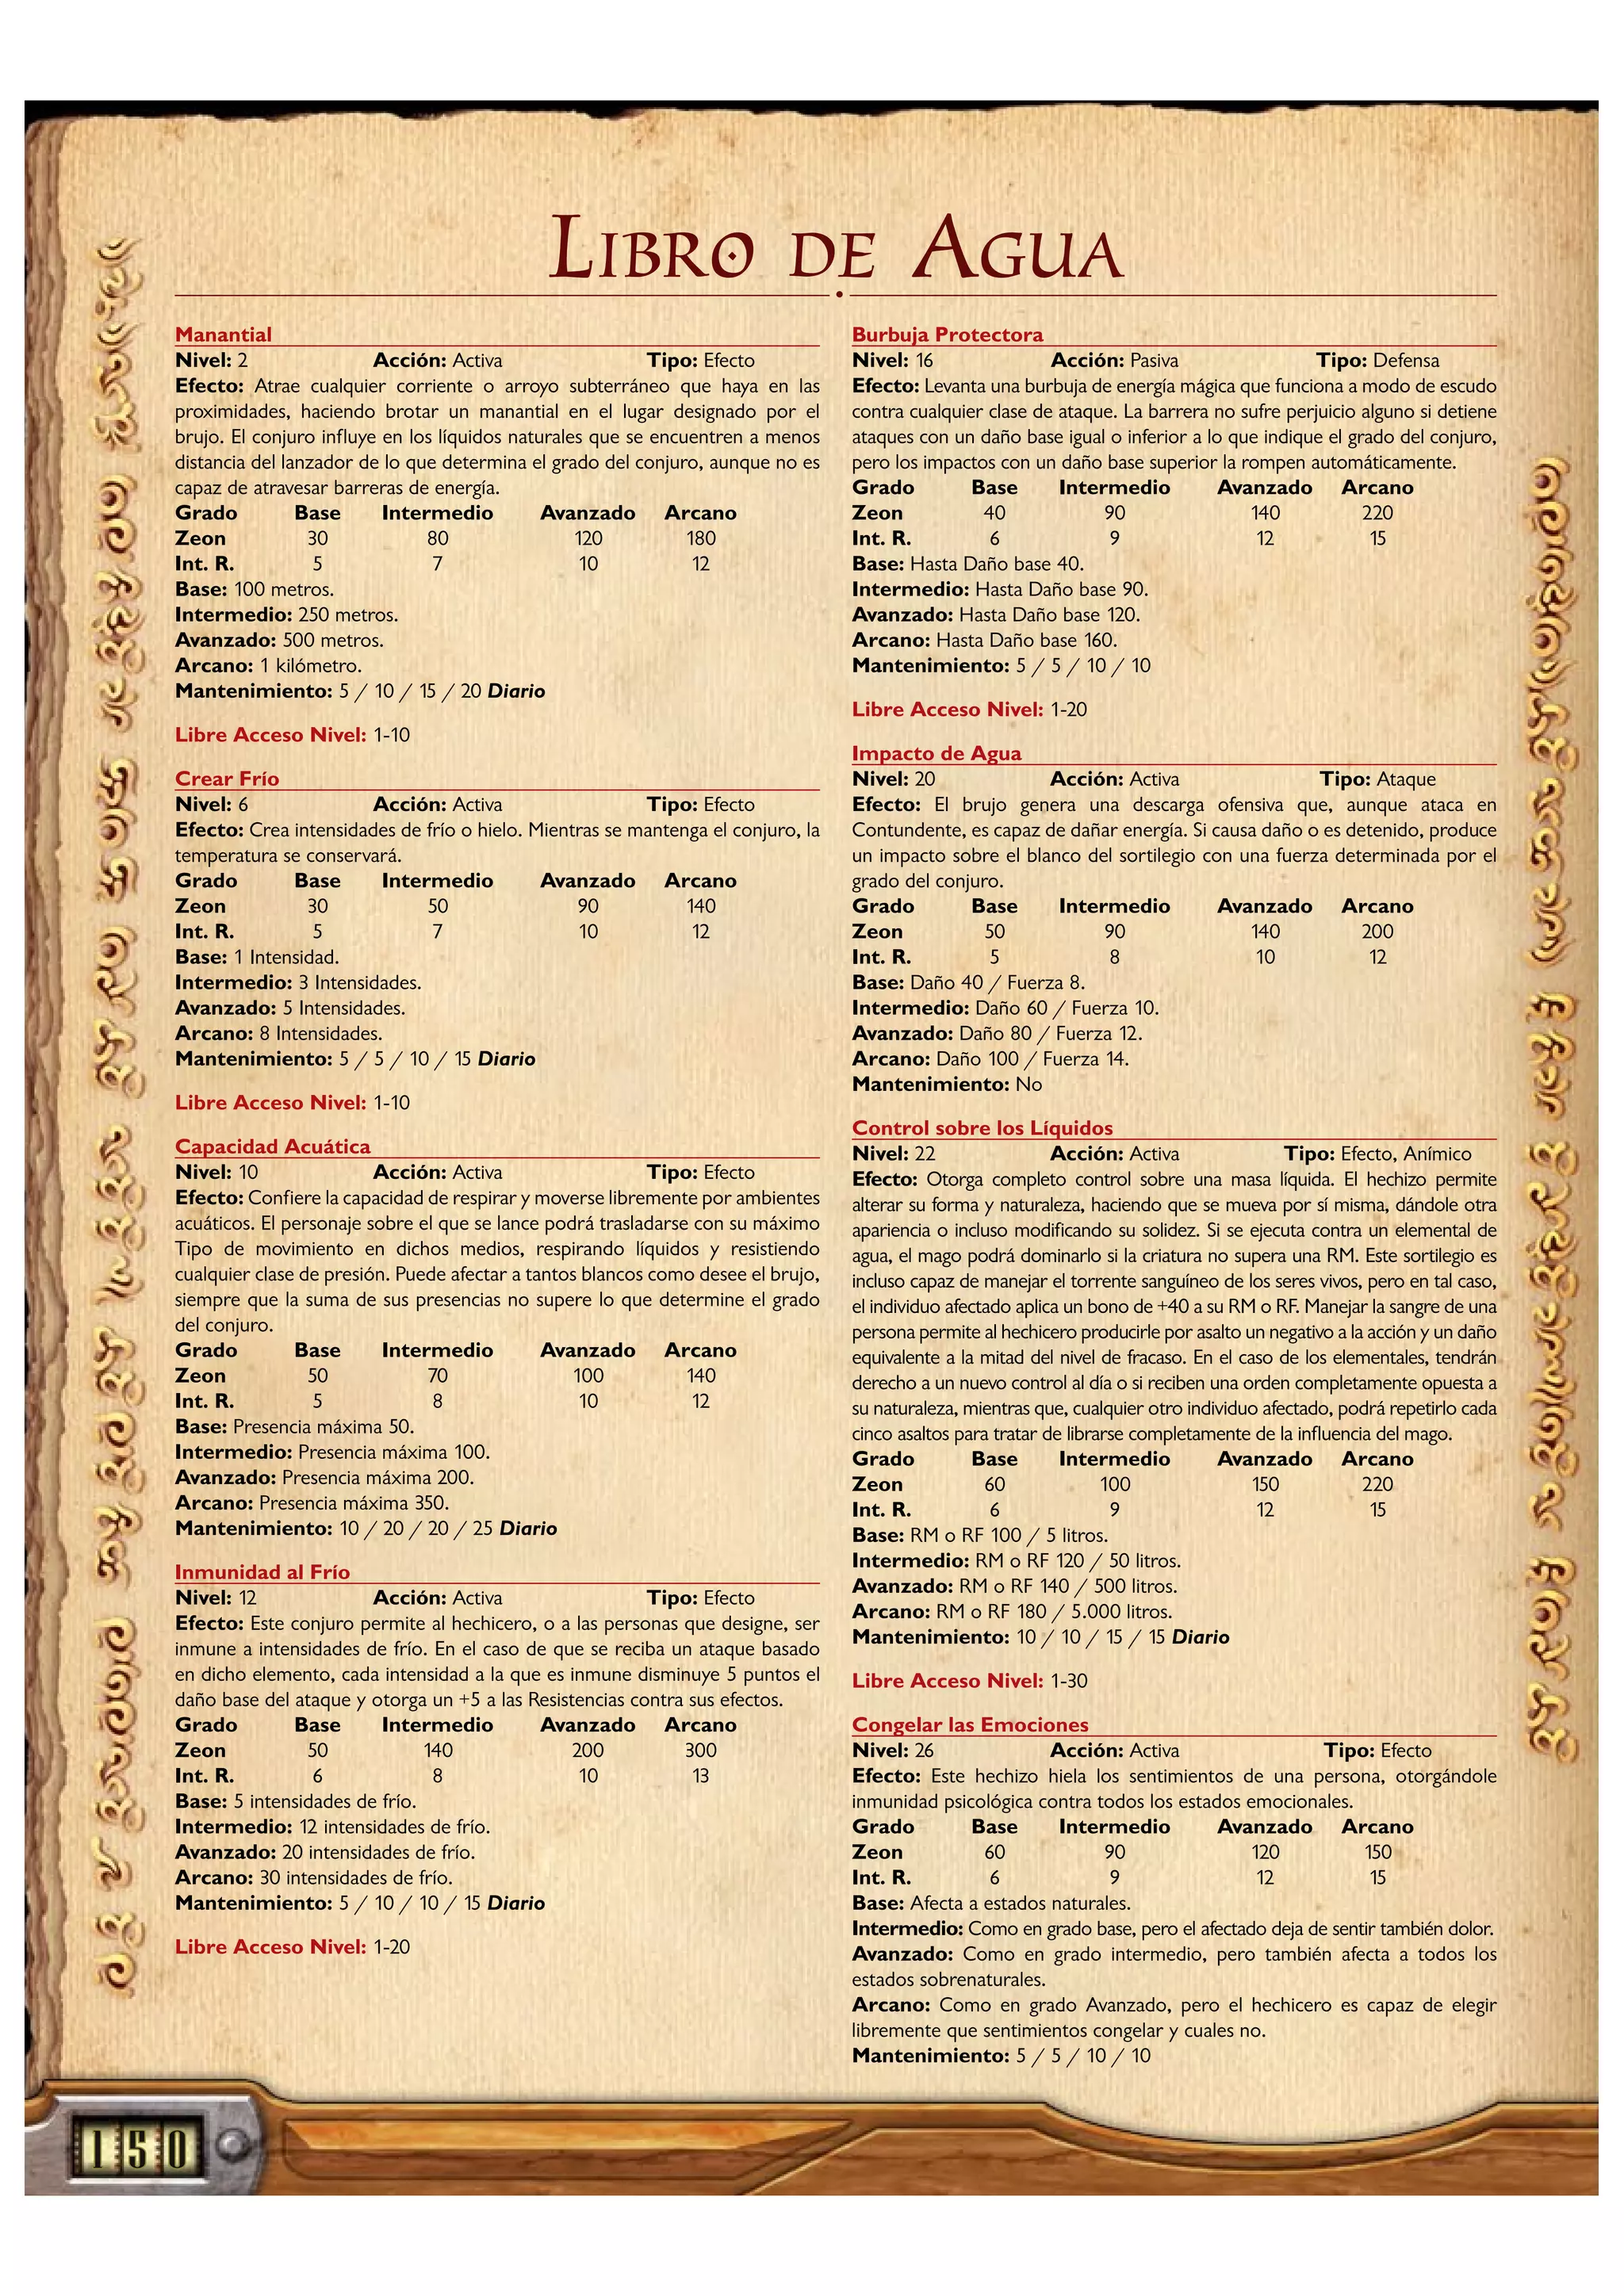 LIBRO DE AGUA
Manantial
Nivel: 2 Acción: Activa Tipo: Efecto
Efecto: Atrae cualquier corriente o arroyo subterráneo que haya en las
proximidades, haciendo brotar un manantial en el lugar designado por el
brujo. El conjuro influye en los líquidos naturales que se encuentren a menos
distancia del lanzador de lo que determina el grado del conjuro, aunque no es
capaz de atravesar barreras de energía.
Grado Base Intermedio Avanzado Arcano
Zeon 30 80 120 180
Int. R. 5 7 10 12
Base: 100 metros.
Intermedio: 250 metros.
Avanzado: 500 metros.
Arcano: 1 kilómetro.
Mantenimiento: 5 / 10 / 15 / 20 Diario
Libre Acceso Nivel: 1-10
Crear Frío
Nivel: 6 Acción: Activa Tipo: Efecto
Efecto: Crea intensidades de frío o hielo. Mientras se mantenga el conjuro, la
temperatura se conservará.
Grado Base Intermedio Avanzado Arcano
Zeon 30 50 90 140
Int. R. 5 7 10 12
Base: 1 Intensidad.
Intermedio: 3 Intensidades.
Avanzado: 5 Intensidades.
Arcano: 8 Intensidades.
Mantenimiento: 5 / 5 / 10 / 15 Diario
Libre Acceso Nivel: 1-10
Capacidad Acuática
Nivel: 10 Acción: Activa Tipo: Efecto
Efecto: Confiere la capacidad de respirar y moverse libremente por ambientes
acuáticos. El personaje sobre el que se lance podrá trasladarse con su máximo
Tipo de movimiento en dichos medios, respirando líquidos y resistiendo
cualquier clase de presión. Puede afectar a tantos blancos como desee el brujo,
siempre que la suma de sus presencias no supere lo que determine el grado
del conjuro.
Grado Base Intermedio Avanzado Arcano
Zeon 50 70 100 140
Int. R. 5 8 10 12
Base: Presencia máxima 50.
Intermedio: Presencia máxima 100.
Avanzado: Presencia máxima 200.
Arcano: Presencia máxima 350.
Mantenimiento: 10 / 20 / 20 / 25 Diario
Inmunidad al Frío
Nivel: 12 Acción: Activa Tipo: Efecto
Efecto: Este conjuro permite al hechicero, o a las personas que designe, ser
inmune a intensidades de frío. En el caso de que se reciba un ataque basado
en dicho elemento, cada intensidad a la que es inmune disminuye 5 puntos el
daño base del ataque y otorga un +5 a las Resistencias contra sus efectos.
Grado Base Intermedio Avanzado Arcano
Zeon 50 140 200 300
Int. R. 6 8 10 13
Base: 5 intensidades de frío.
Intermedio: 12 intensidades de frío.
Avanzado: 20 intensidades de frío.
Arcano: 30 intensidades de frío.
Mantenimiento: 5 / 10 / 10 / 15 Diario
Libre Acceso Nivel: 1-20
Burbuja Protectora
Nivel: 16 Acción: Pasiva Tipo: Defensa
Efecto: Levanta una burbuja de energía mágica que funciona a modo de escudo
contra cualquier clase de ataque. La barrera no sufre perjuicio alguno si detiene
ataques con un daño base igual o inferior a lo que indique el grado del conjuro,
pero los impactos con un daño base superior la rompen automáticamente.
Grado Base Intermedio Avanzado Arcano
Zeon 40 90 140 220
Int. R. 6 9 12 15
Base: Hasta Daño base 40.
Intermedio: Hasta Daño base 90.
Avanzado: Hasta Daño base 120.
Arcano: Hasta Daño base 160.
Mantenimiento: 5 / 5 / 10 / 10
Libre Acceso Nivel: 1-20
Impacto de Agua
Nivel: 20 Acción: Activa Tipo: Ataque
Efecto: El brujo genera una descarga ofensiva que, aunque ataca en
Contundente, es capaz de dañar energía. Si causa daño o es detenido, produce
un impacto sobre el blanco del sortilegio con una fuerza determinada por el
grado del conjuro.
Grado Base Intermedio Avanzado Arcano
Zeon 50 90 140 200
Int. R. 5 8 10 12
Base: Daño 40 / Fuerza 8.
Intermedio: Daño 60 / Fuerza 10.
Avanzado: Daño 80 / Fuerza 12.
Arcano: Daño 100 / Fuerza 14.
Mantenimiento: No
Control sobre los Líquidos
Nivel: 22 Acción: Activa Tipo: Efecto, Anímico
Efecto: Otorga completo control sobre una masa líquida. El hechizo permite
alterar su forma y naturaleza, haciendo que se mueva por sí misma, dándole otra
apariencia o incluso modificando su solidez. Si se ejecuta contra un elemental de
agua, el mago podrá dominarlo si la criatura no supera una RM. Este sortilegio es
incluso capaz de manejar el torrente sanguíneo de los seres vivos, pero en tal caso,
el individuo afectado aplica un bono de +40 a su RM o RF. Manejar la sangre de una
persona permite al hechicero producirle por asalto un negativo a la acción y un daño
equivalente a la mitad del nivel de fracaso. En el caso de los elementales, tendrán
derecho a un nuevo control al día o si reciben una orden completamente opuesta a
su naturaleza, mientras que, cualquier otro individuo afectado, podrá repetirlo cada
cinco asaltos para tratar de librarse completamente de la influencia del mago.
Grado Base Intermedio Avanzado Arcano
Zeon 60 100 150 220
Int. R. 6 9 12 15
Base: RM o RF 100 / 5 litros.
Intermedio: RM o RF 120 / 50 litros.
Avanzado: RM o RF 140 / 500 litros.
Arcano: RM o RF 180 / 5.000 litros.
Mantenimiento: 10 / 10 / 15 / 15 Diario
Libre Acceso Nivel: 1-30
Congelar las Emociones
Nivel: 26 Acción: Activa Tipo: Efecto
Efecto: Este hechizo hiela los sentimientos de una persona, otorgándole
inmunidad psicológica contra todos los estados emocionales.
Grado Base Intermedio Avanzado Arcano
Zeon 60 90 120 150
Int. R. 6 9 12 15
Base: Afecta a estados naturales.
Intermedio: Como en grado base, pero el afectado deja de sentir también dolor.
Avanzado: Como en grado intermedio, pero también afecta a todos los
estados sobrenaturales.
Arcano: Como en grado Avanzado, pero el hechicero es capaz de elegir
libremente que sentimientos congelar y cuales no.
Mantenimiento: 5 / 5 / 10 / 10
150